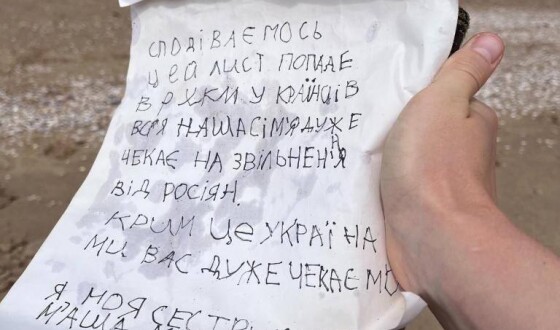 СПОДІВАЄМОСЬ
ЦЕЙ ЛИСТ ПОПАДЕ
В РУКИ УКРАЇНЦІВ
ВСЯ НАША СІМ'Я ДУЖЕ
ЧЕКАЄ НА ЗВІЛЬНЕННЯ
ВІД РОСІЯН.
КРИМ ЦЕ УКРАЇНА
МИ ВАС ДУЖЕ ЧЕКАЄМО
Я МОЯ СЕСТРИ
МАША